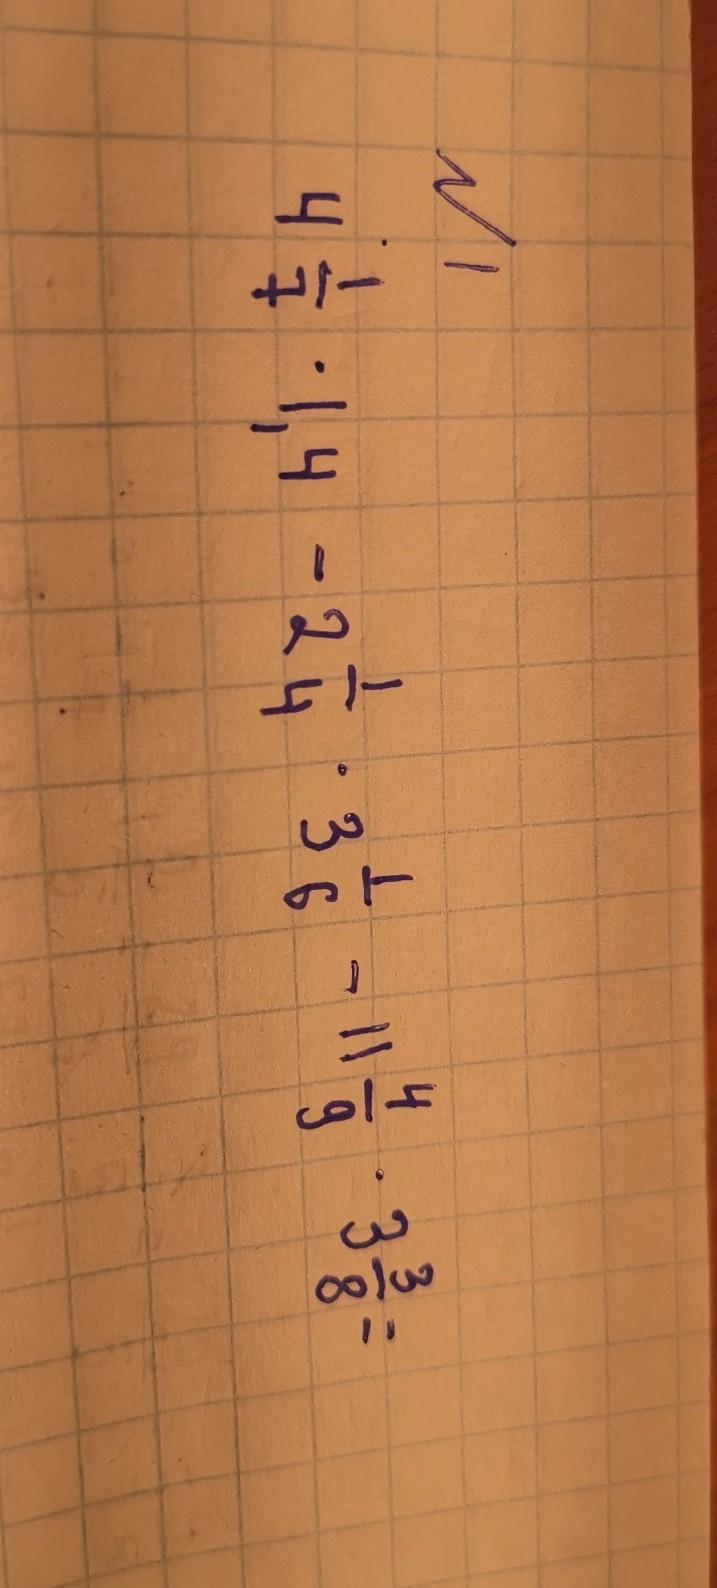 №1
4 1/7 · 1,4 - 2 1/4 · 3 1/6 - 11 4/9 · 3 3/8 =